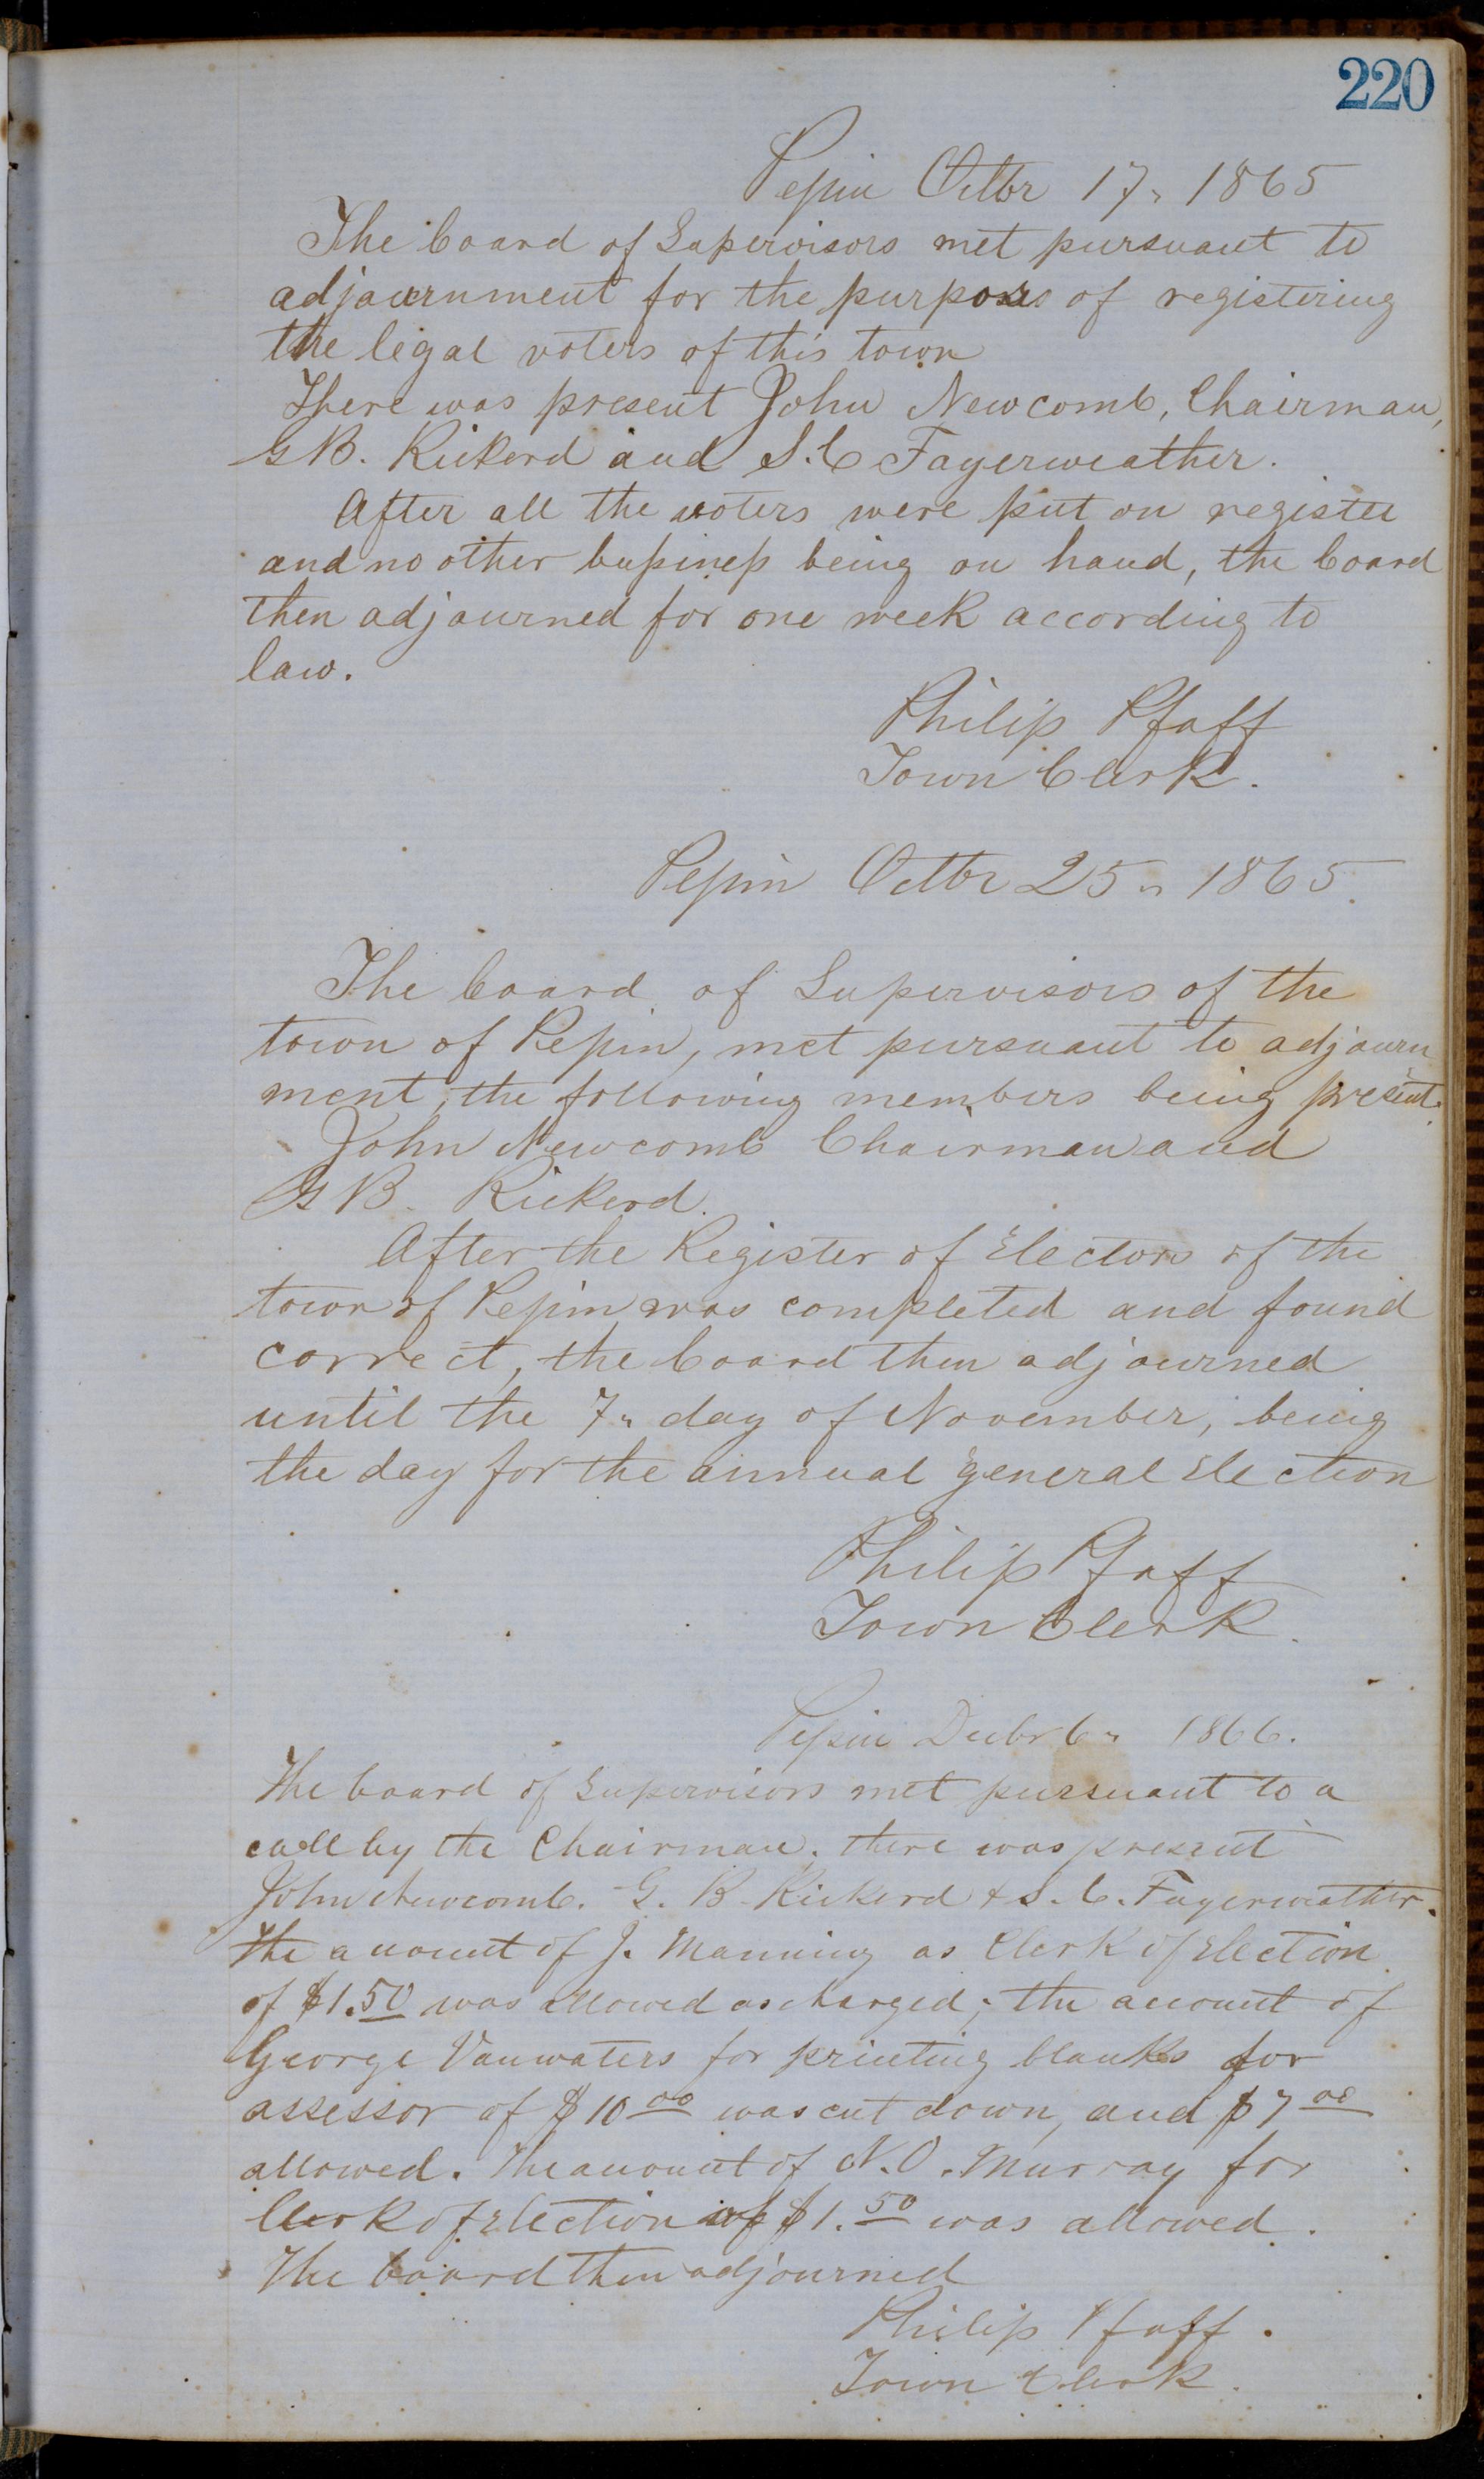 220
Pepin Octbr 17" 1865
The board of Supervisors met pursuant to
adjournment for the purposes of registering
the legal voters of this town
There was present John Newcomb, Chairman,
G B. Rickerd and S. C Fayerweather.
After all the voters were put on register
and no other business being on hand, the board
then adjourned for one week according to
law.
Philip Pfaff
Town Clerk.
Pepin Octbr 25" 1865.
The board of Supervisors of the
town of Pepin, met pursuant to adjourn
ment, the following members being present.
John Newcomb Chairman and
G B. Rickerd.
After the Register of Electors of the
town of Pepin was completed and found
correct, the board then adjourned
until the 7" day of November, being
the day for the annual general Election
Philip Pfaff
Town Clerk.
Pepin Decbr 6" 1866.
The board of Supervisors met pursuant to a
call by the Chairman. there was present
John Newcomb. G. B. Rickerd & S. C. Fayerweather.
The account of J. Manning as Clerk of Election
of $1.50 was allowed as charged; the account of
George Vanwaters for printing blanks for
assessor of $10 00 was cut down, and $7 00
allowed. The account of N. O. Murray for
Clerk of Election of $1. 50 was allowed.
The board then adjourned
Philip Pfaff.
Town Clerk.